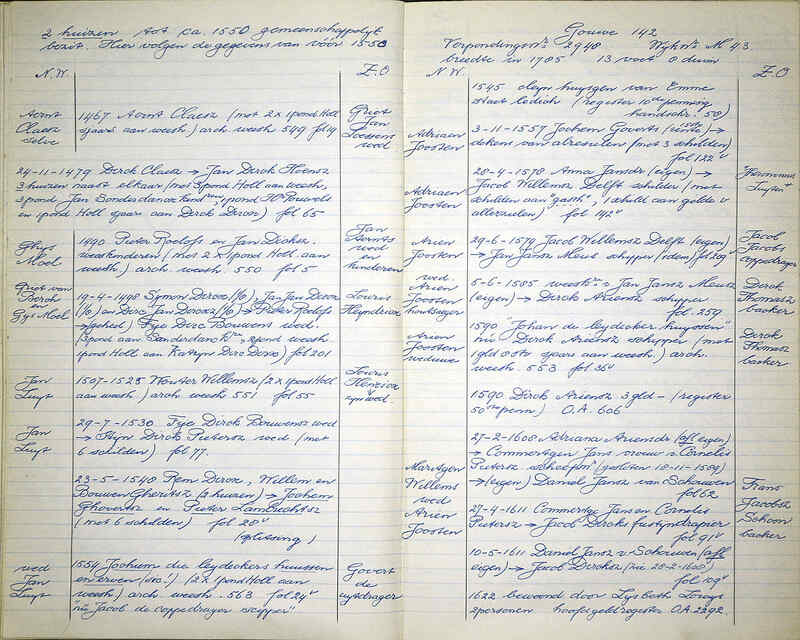 2 huizen tot ca. 1550 gemeenschappelijk
bezit. Hier volgen de gegevens van vóór 1550
N.W.
Z.O
Aernt
Claesz
selve
1467 Aernt Claesz (met 2 x 1pond Holl
sjaars aan weesh) arch weesh 549 fol 49
Griet
Jan
wed
24-11-1479 Dirck Claesz → Jan Dirck Hoensz
3 huizen naast elkaar (met 3pond Holl aan weesh,
3pond Jan Sonderdanck 1pond
en 1pond Holl sjaars aan Dirck Dircx) fol 65
Ghijs
Moel
1490 Pieter Roelofs en Jan Dircksz.
weeskinderen (met 2 x 1pond Holl aan
weesh) arch weesh. 550 fol 5
Jan
Aernts
wed
en
kinderen
Griet van
Borch
Gijs Moel
19-4-1498 Symon Dircxz (1/6), Jan Jan Dircx
(1/6) en Dirc Jan Dircxz (1/6) → Pieter Roelofs
→ geheel) Fije Dirc Bouwens wed.
1pond Holl aan Katryn Dirc Dircx) fol 201
Louris
Heyndricx
Jan
Luyt
1507-1525 Wouter Willemsz (2 x 1pond Holl
aan weesh) arch weesh 551 fol 55
Louris
Henricx
zijn wed.
Jan
Luyt
29-7-1530 Fije Dirck Bouwens wed
→ Stijn Dirck Pieters wed (met
6 schilden) fol 77.
23-5-1540 Rem Dircx, Willem en
Bouwen Gheritsz (2 huizen) → Jochem
Ghovertsz en Pieter Lambrechtsz
(met 6 schilden) fol 28v
(splitsing)
wed
Jan
Luyt
1554 Jochum die leydeckers huussen
en erven (dio.!) (2 x 1pond Holl aan
weesh) arch weesh. 563 fol 24v
"nu Jacob de coppedrager scipper"
Govert
de
uytdrager
Gouwe 142
Verpondingsnr. 2948 Wijknr. M 43
breedte in 1785 13 voet 0 duim
N.W.
Z.O
1545 cleyn huysgen van Emme
staet ledich (register 10de penning
handschr. 58)
Adriaen
Joosten
3-11-1557 Jochem Goverts (rente) →
dekens van alreseelen (met 3 schilden)
fol 122v
Adriaen
Joosten
28-4-1570 Anna Jansdr (eigen) →
Jacob Willemsz Delft schilder (met
schilden aan gasth, 1 schild aan gilde v
allerzielen) fol 142v
"Hermanus
Luyten"
Arien
Joosten
29-6-1579 Jacob Willemsz Delft (eigen)
→ Jan Jansz Meus schipper (idem) fol 209v
Jacob
Jacobs
coppedrager
wed.
Arien
Joosten
houtsager
5-6-1585 weeskr. v Jan Jansz Meusz
(eigen) → Dirck Ariensz schipper
fol. 259
Dirck
Thomasz
backer
Arien
Joosten
weduwe
1590 "Johan de leydecker huyssen"
nu Dirck Ariensz schipper (met
1 gld 00 st sjaars aan weesh) arch.
weesh. 553 fol 36v
Dirck
Thomasz
backer
1590 Dirck Ariensz 3 gld - (register
50ste penn) O.A. 606
27-2-1600 Adriana Ariensdr (afl eigen)
→ Commertgen Jans vrouw v. Cornelis
Pietersz schoefsn (gesloten 18-11-1589)
→ (eigen) Daniel Jansz van Schouwen
fol 62
Martgen
Willems
wed
Arien
Joosten
27-4-1611 Commertge Jans en Cornelis
Pietersz → Jacob Dircks fusteyndrapier
fol 91v
Frans
Jacobsz
Schoon
backer
10-5-1611 Daniel Jansz v Schouwen (afl
eigen) → Jacob Dircksz (zie 28-2-1600)
fol 109v
1622 bewoond door Lysbeth Lourys
2personen hoofdgeldregister O.A. 2292.